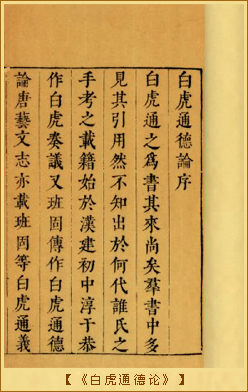 白虎通德論序
白虎通之為書其來尚矣羣書中多
見其引用然不知出於何代誰氏之
手考之載籍始於漢建初中淳于恭
作白虎奏議又班固傳作白虎通德
論唐藝文志亦載班固等白虎通義
【《白虎通德论》】